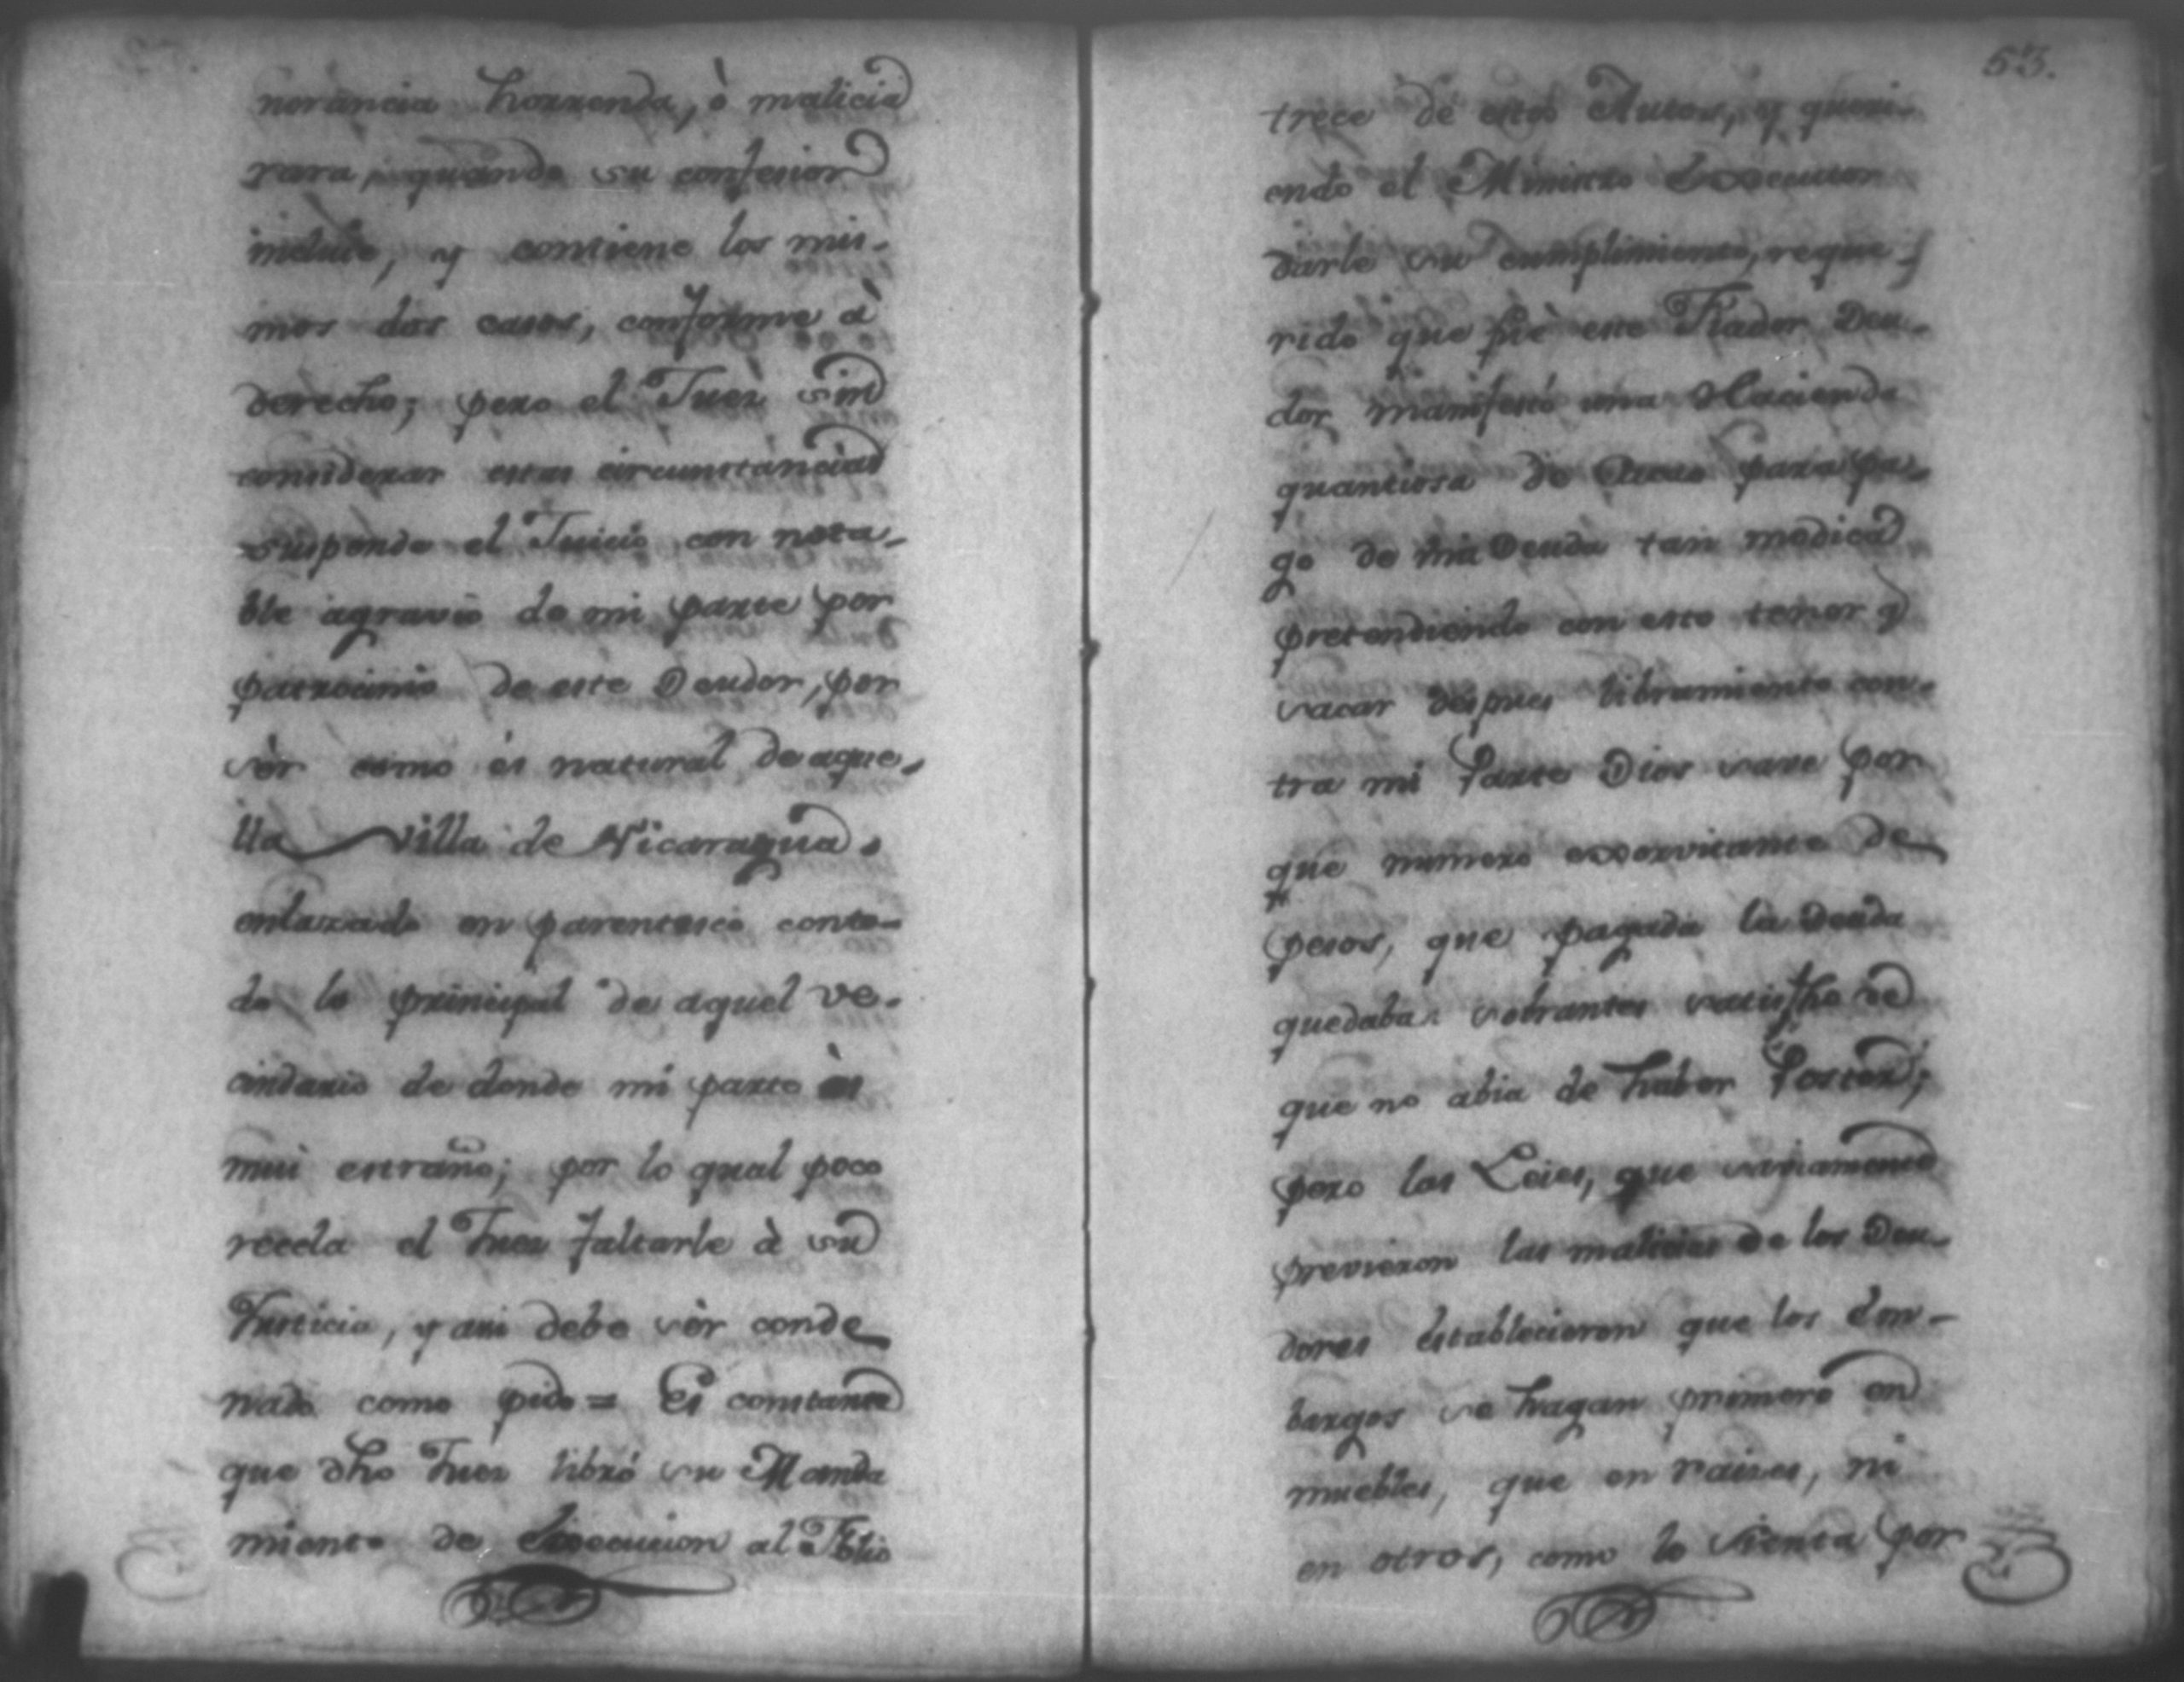 norancia horrenda, ò malicia
rara, quando su confesion
inclúie, y contiene los mis-
mos dos casos, conforme à
derecho; pero el Juez sin
considerar estas circunstancias
suspende el Juicio con nota-
ble agravio de mi parte por
patrocinio de este Deudor, por
sèr como ès natural de aque-
lla villa de Nicaragua,
enlazado en parentesco con to-
do lo principal de aquel ve-
cindario de donde mi parte ès
mui estraño; por lo qual poco
recela el Juez faltarle à su
Justicia, y assi debe sèr conde
nado como pido = Es constante
que dho Juez libró su Manda
miento de Execucion al Folio
53.
trece de estos Autos, y queri-
endo el Ministro Executor
darle su cumplimiento, reque-
rido que fúe este Fiador Deu-
dor manifestó una Hacienda
quantiosa de Cacao para pa-
go de una Deuda tan modica
pretendiendo con esto tenor y
sacar despues libramiento con-
tra mi Parte Dios save por
que numero exxorvitante de
pesos, que pagada la Deuda
quedaban sobrantes satisfho de
que no abia de haber Postor;
pero las Leies, que sanamente
previeron las malicias de los Deu-
dores establecieron que los Em-
bargos se hagan primero en
muebles, que en raizes, ni
en otros, como lo sienta por